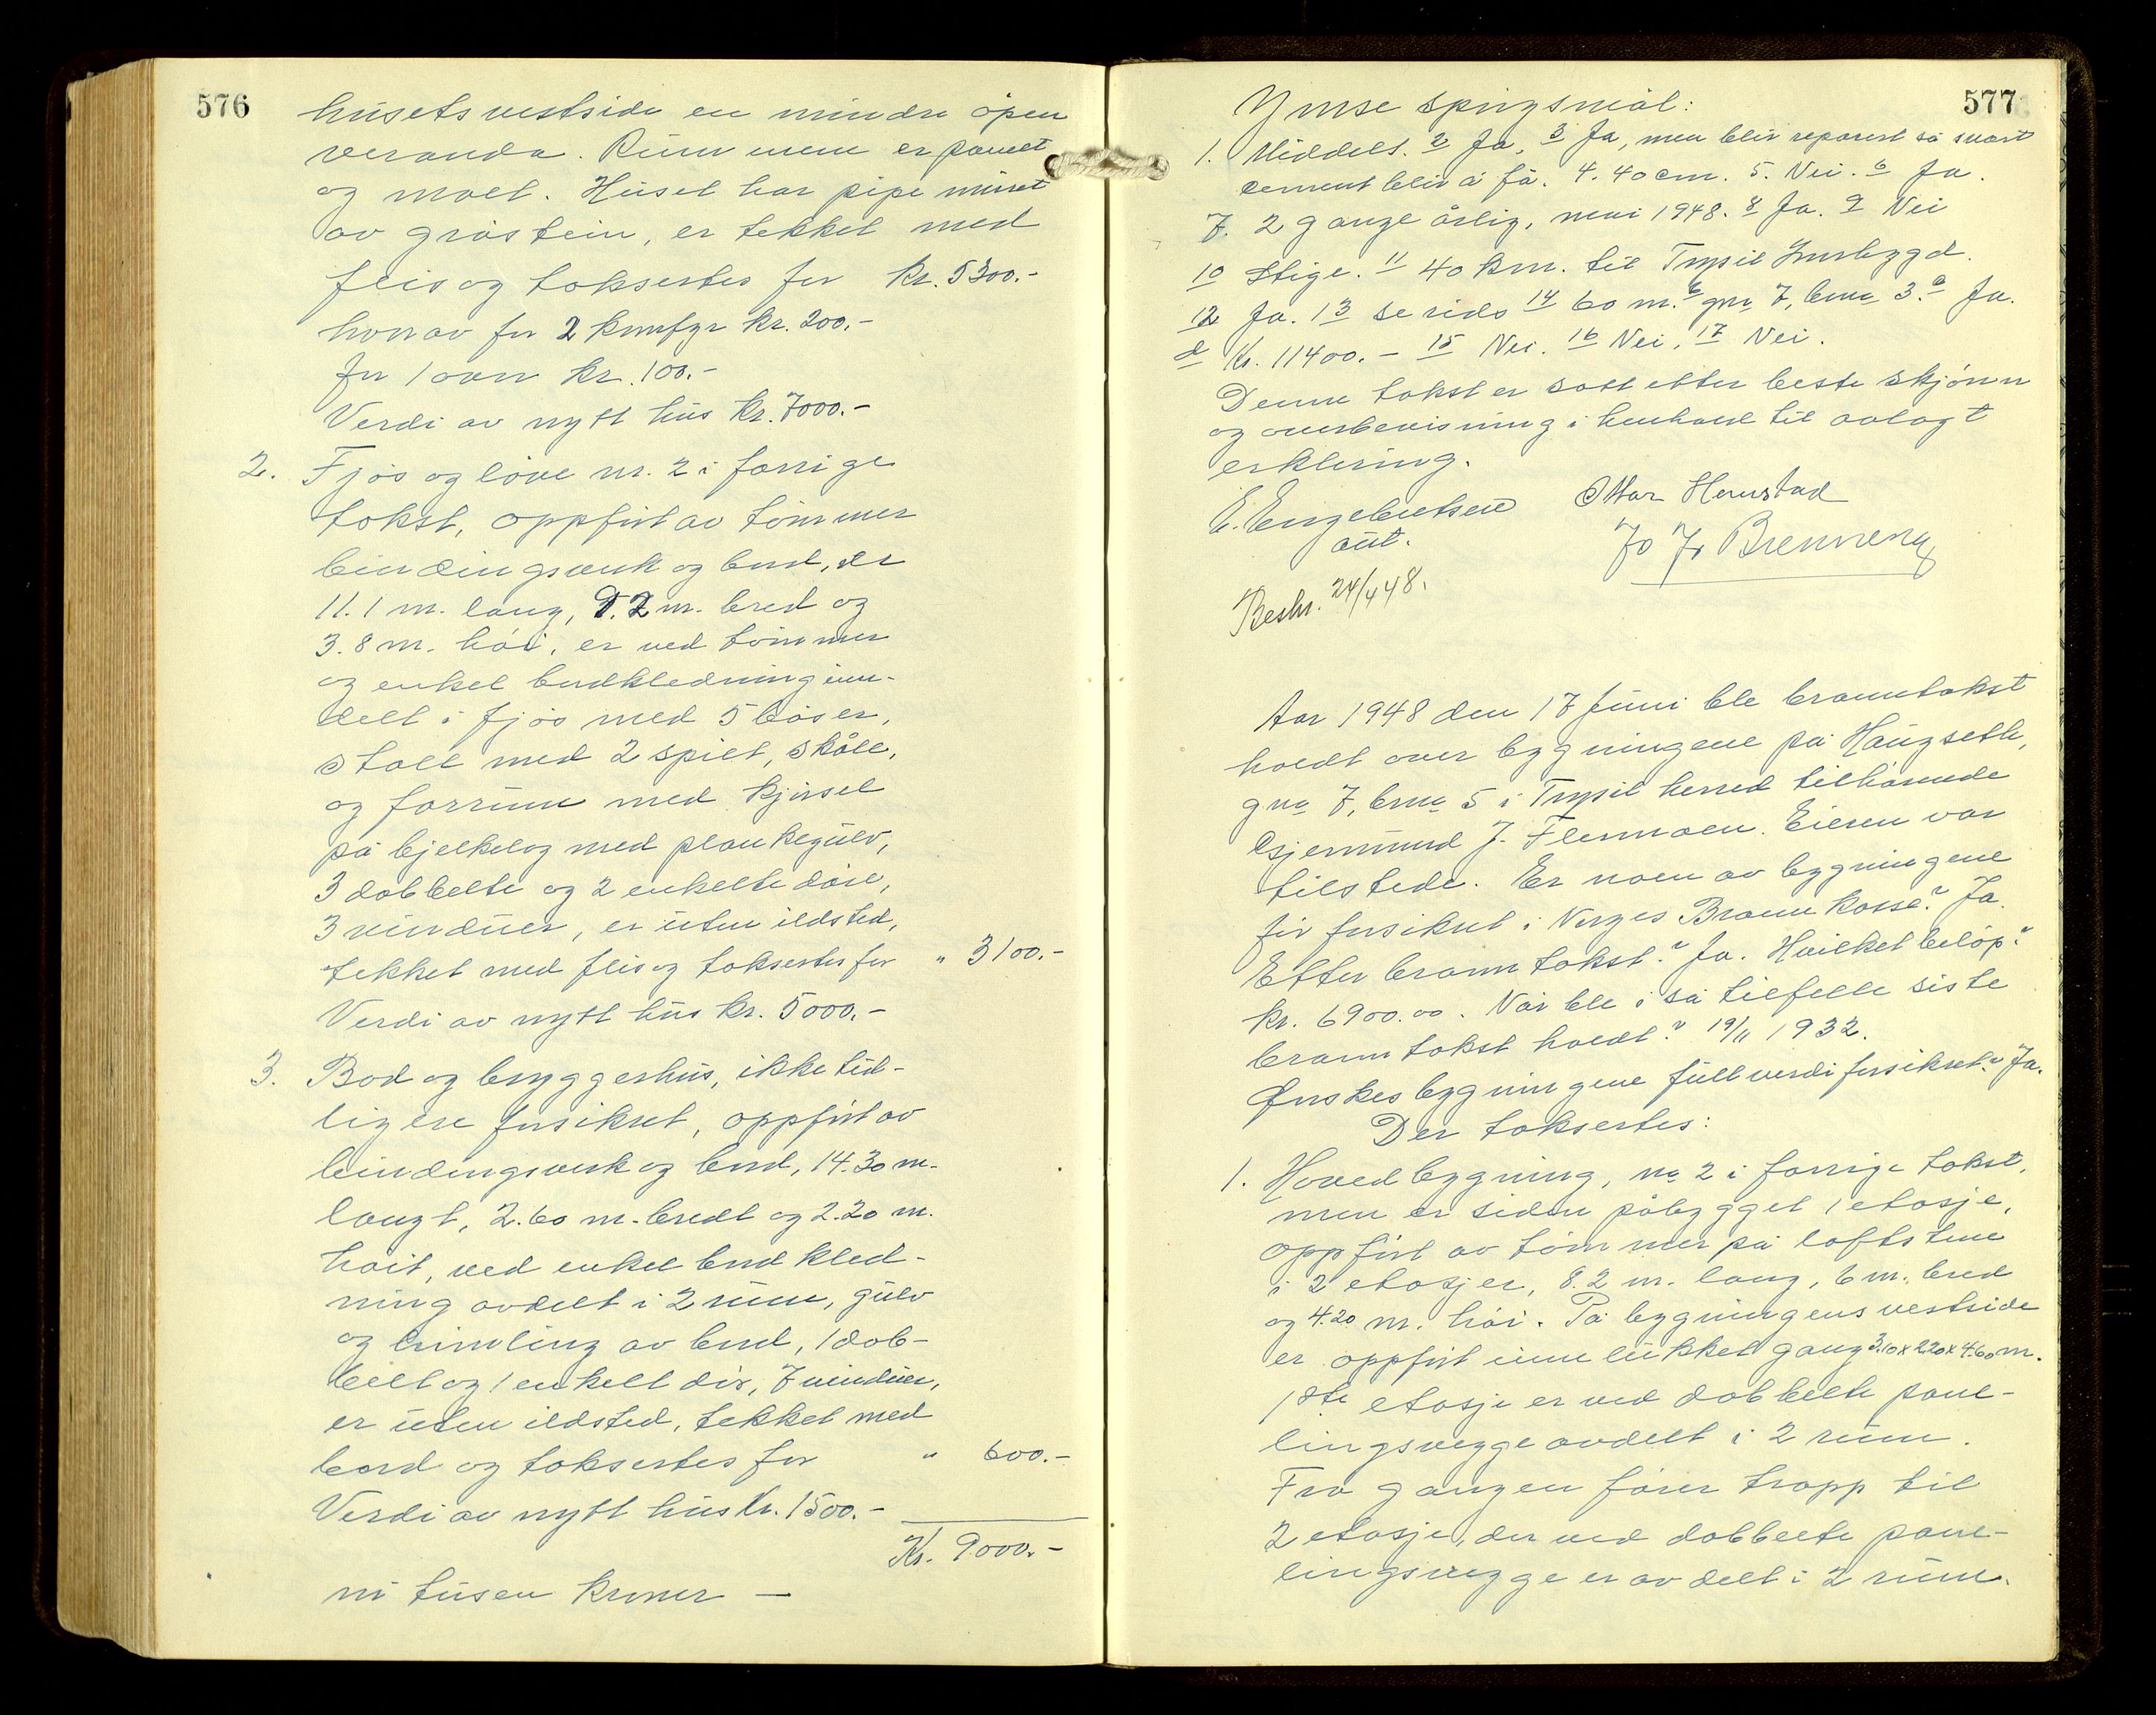 576
husets vestside en mindre åpen
veranda. Rummene er panelt
og malt. Huset har pipe muret
av gråstein, er tekket med
flis og taksertes for kr. 5300.-
hvorav for 2 komfyr kr. 200.-
for 1 ovn kr. 100.-
Verdi av nytt hus kr. 7000.-
2. Fjøs og låve nr. 2 i forrige
takst, oppført av tømmer
bindingsverk og bord, er
11.1 m. lang, 9.2 m. bred og
3.8 m. høi, er ved tømmer
og enkel bordkledning inn-
delt i fjøs med 5 båser,
stall med 2 spilt, skåle,
og forrum med kjørsel
på bjelkelag med plankegulv,
3 dobbelte og 2 enkelte døre,
3 vinduer, er uten ildsted,
tekket med flis og taksertes for " 3100.-
Verdi av nytt hus kr. 5000.-
3. Bod og bryggerhus, ikke tid-
ligere forsikret, oppført av
bindingsverk og bord, 14.30 m.
langt, 2.60 m. bredt og 2.20 m.
høit, ved enkel bord kled-
ning avdelt i 2 rum, gulv
og himling av bord, 1 dob-
belt og 1 enkelt dør, 7 vinduer,
er uten ildsted, tekket med
bord og taksertes for " 600.-
Verdi av nytt hus kr. 1500.-
Kr. 9000.-
ni tusen kroner —
577
Ymse spørgsmål:
1. Middels. 2 Ja, 3 Ja, men blir reparert så snart
cement blir å få. 4. 40 cm. 5. Nei. 6 Ja.
7. 2 gange årlig, mai 1948. 8 Ja. 9 Nei
10 Stige. 11 40 km. til Trysil Innbygd.
12 Ja. 13 se rids 14 60 m. b gnr 7, bnr 3. c Ja.
d Kr. 11400.- 15 Nei. 16 Nei, 17 Nei.
Denne takst er satt etter beste skjønn
og overbevisning i henhold til avlagt
erklæring.
E. Engebretsen Ottar Hemstad
aut. Jo Jr Brenneng
Beskr. 24/4 48.
Aar 1948 den 17 Juni ble branntakst
holdt over bygningene på Haugseth,
gnr 7, bnr 5 i Trysil herred tilhørende
Gjermund J. Flermoen. Eieren var
tilstede. Er noen av bygningene
før forsikret i Norges Brannkasse? Ja.
Efter branntakst? Ja. Hvilket beløp?
kr. 6900.00. Når ble i så tilfelle siste
branntakst holdt? 19/11 1932.
Ønskes bygningene fullverdiforsikret? Ja.
Der taksertes:
1. Hovedbygning, nr 2 i forrige takst,
men er siden påbygget 1 etasje,
oppført av tømmer på loftstue
i 2 etasjer, 8.2 m. lang, 6 m. bred
og 4.20 m. høi. På bygningens vestside
er oppført innelukket gang 3.10 x 2.20 x 4.60 m.
1ste etasje er ved dobbelte pane-
lingsvegge avdelt i 2 rum.
Fra gangen fører trapp til
2 etasje, der ved dobbelte pane-
lingsvegge er avdelt i 2 rum.